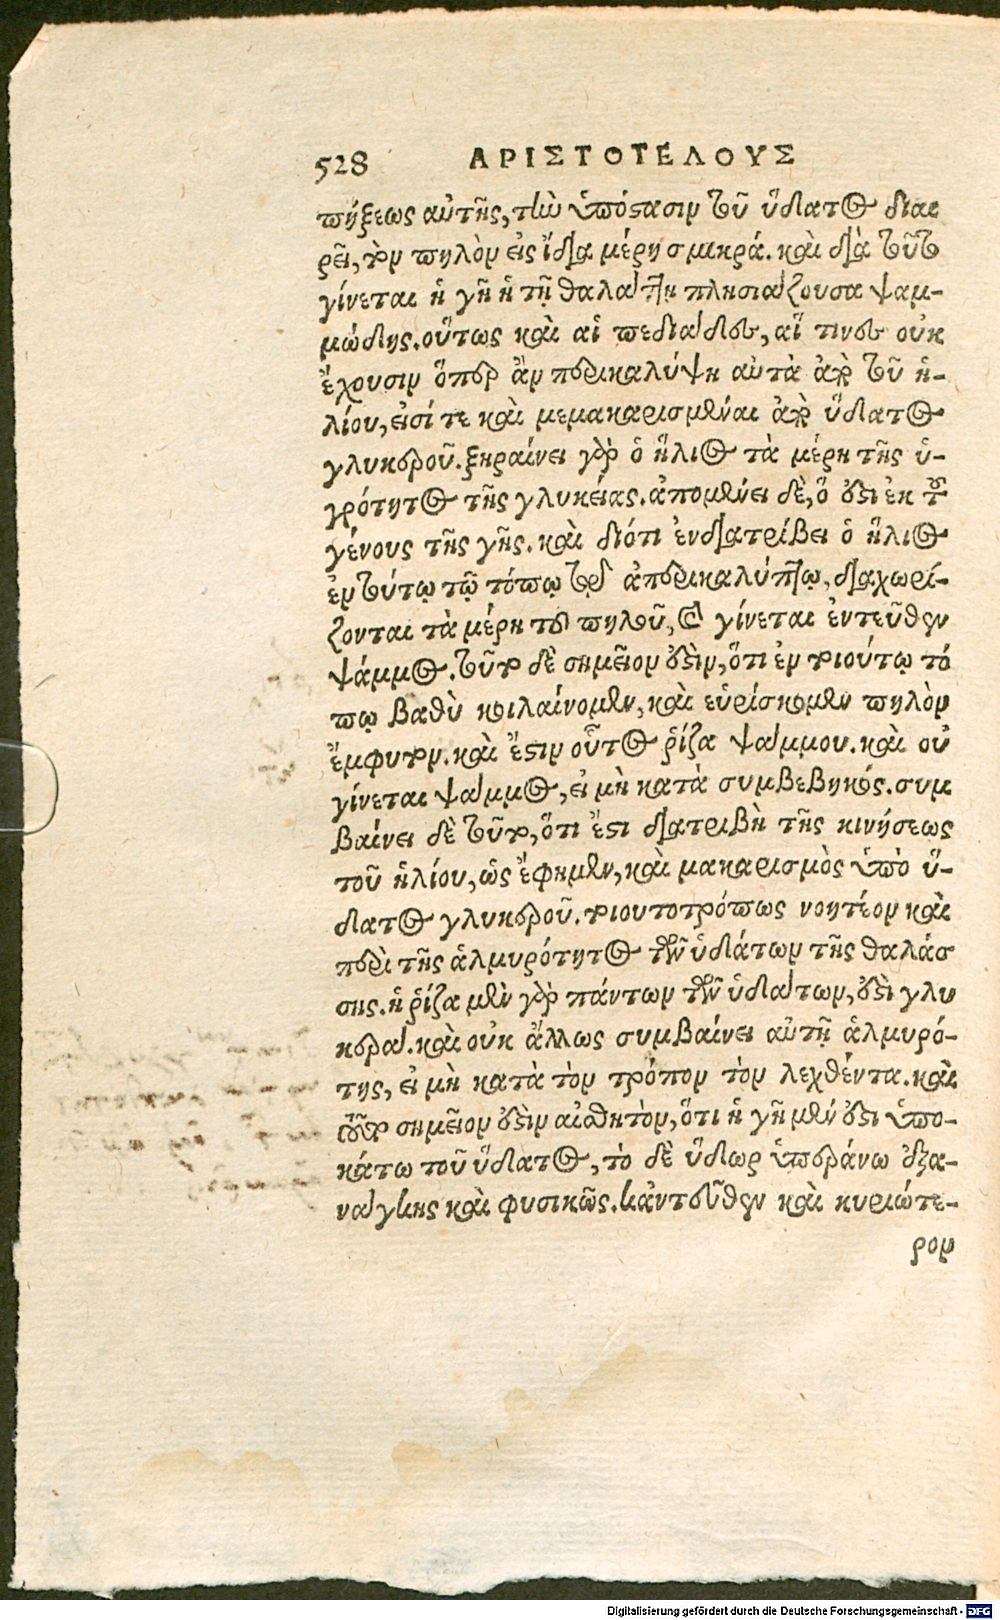 528 ΑΡΙΣΤΟΤΕΛΟΥΣ
πήξεως αὐτῆς, τὴν ὑπόστασιν τοῦ ὕδατος διαι
ρεῖ, τὸν πηλὸν εἰς ἴδια μέρη σμικρά. καὶ διὰ τοῦτο
γίνεται ἡ γῆ ἡ τῇ θαλάττῃ πλησιάζουσα ψαμ-
μώδης. οὕτως καὶ αἱ πεδιάδες, αἵ τινες οὐκ
ἔχουσιν ὅπερ ἂν περικαλύψῃ αὐτὰ ἀπὸ τοῦ ἡ-
λίου, εἰσί τε καὶ μεμακαρισμέναι ἀπὸ ὕδατος
γλυκεροῦ. ξηραίνει γὰρ ὁ ἥλιος τὰ μέρη τῆς ὑ-
γρότητος τῆς γλυκείας. ἀπομένει δὲ, ὅ ἐστι ἐκ τοῦ
γένους τῆς γῆς. καὶ διότι ἐνδιατρίβει ὁ ἥλιος
ἐν τούτῳ τῷ τόπῳ τῷ ἀπερικαλύπτῳ, διαχωρί-
ζονται τὰ μέρη τοῦ πηλοῦ, καὶ γίνεται ἐντεῦθεν
ψάμμος. τοῦτο δὲ σημεῖον ἐστὶν, ὅτι ἐν τοιούτῳ τό
πῳ βαθὺ κοιλαίνομεν, καὶ εὑρίσκομεν πηλὸν
ἔμφυτον. καὶ ἔστιν οὗτος ῥίζα ψάμμου. καὶ οὐ
γίνεται ψάμμος, εἰ μὴ κατὰ συμβεβηκός. συμ
βαίνει δὲ τοῦτο, ὅτι ἔστι διατριβὴ τῆς κινήσεως
τοῦ ἡλίου, ὡς ἔφημεν, καὶ μακαρισμὸς ὑπὸ ὕ-
δατος γλυκεροῦ. τοιουτοτρόπως νοητέον καὶ
περὶ τῆς ἁλμυρότητος τῶν ὑδάτων τῆς θαλάσ
σης. ἡ ῥίζα μὲν γὰρ πάντων τῶν ὑδάτων, ἐστὶ γλυ
κερά. καὶ οὐκ ἄλλως συμβαίνει αὐτῇ ἁλμυρό-
της, εἰ μὴ κατὰ τὸν τρόπον τὸν λεχθέντα. καὶ
τοῦτο σημεῖον ἐστὶν αἰσθητὸν, ὅτι ἡ γῆ μέν ἐστι ὑπο-
κάτω τοῦ ὕδατος, τὸ δὲ ὕδωρ ὑπεράνω ἐξα-
νάγκης καὶ φυσικῶς. κἀντεῦθεν καὶ κυριώτε-
ρον
Digitalisierung gefördert durch die Deutsche Forschungsgemeinschaft - DFG